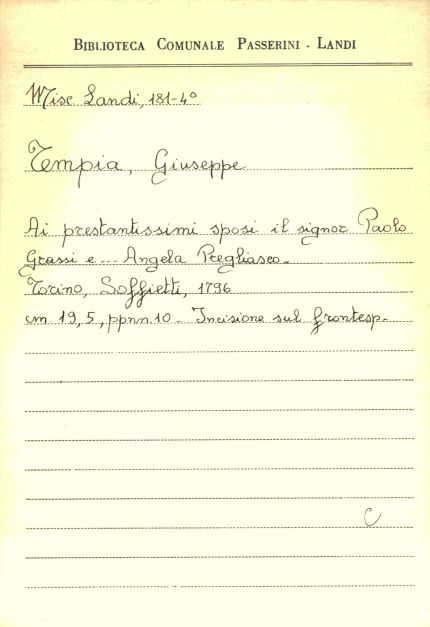 BIBLIOTECA COMUNALE PASSERINI - LANDI
Misc Landi, 181-4º
Tempia, Giuseppe
Ai prestantissimi sposi il signor Paolo
Grassi e --- Angela Pregliasco.-
Torino, Soffietti, 1796
cm. 19,5, ppnn.10 - Incisione sul frontesp.-
C